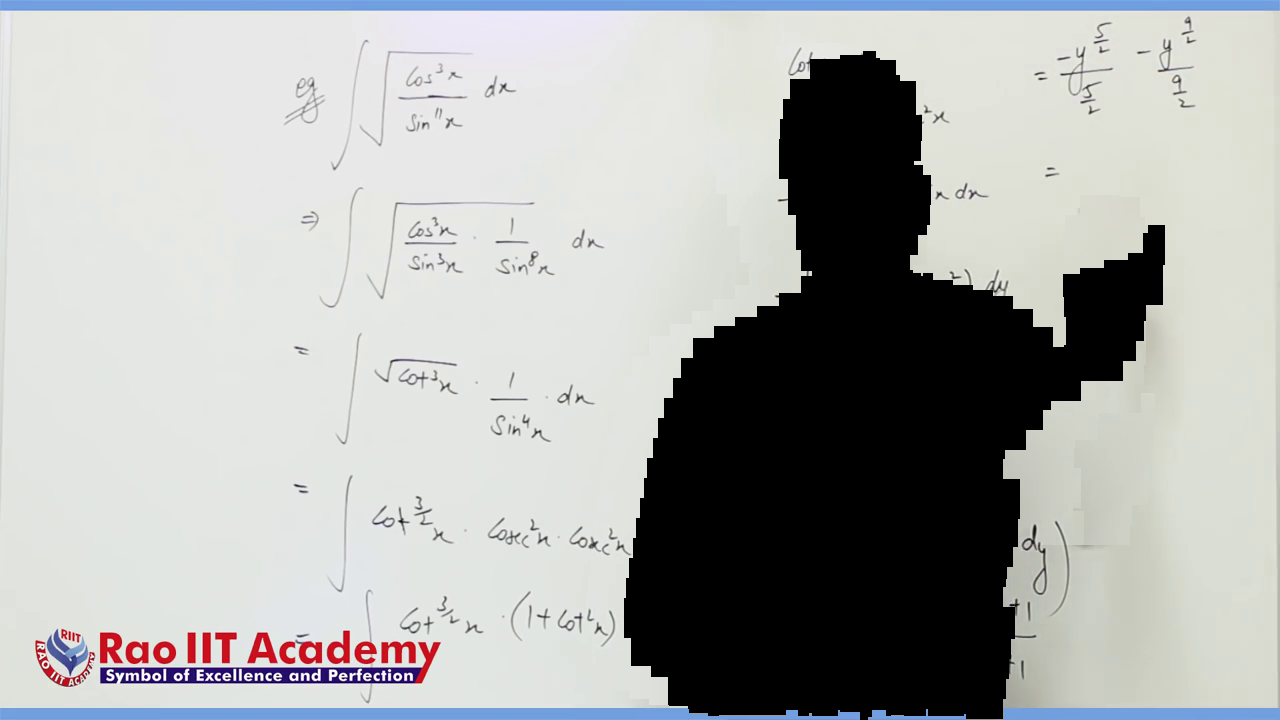 eg ∫ √(Cos³x / Sin¹¹x) dx
⇒ ∫ √(Cos³x / Sin³x · 1 / Sin⁸x) dx
= ∫ √Cot³x · 1 / Sin⁴x · dx
= ∫ Cot^(3/2) x · Cosec²x · Cosec²x
= ∫ Cot^(3/2) x · (1 + Cot²x)
Cot
²x
x dx
²) dy
dy)
+1
+1
= -y^(5/2) / (5/2) - y^(9/2) / (9/2)
=
RIIT
RAO IIT ACADEMY
Rao IIT Academy
Symbol of Excellence and Perfection